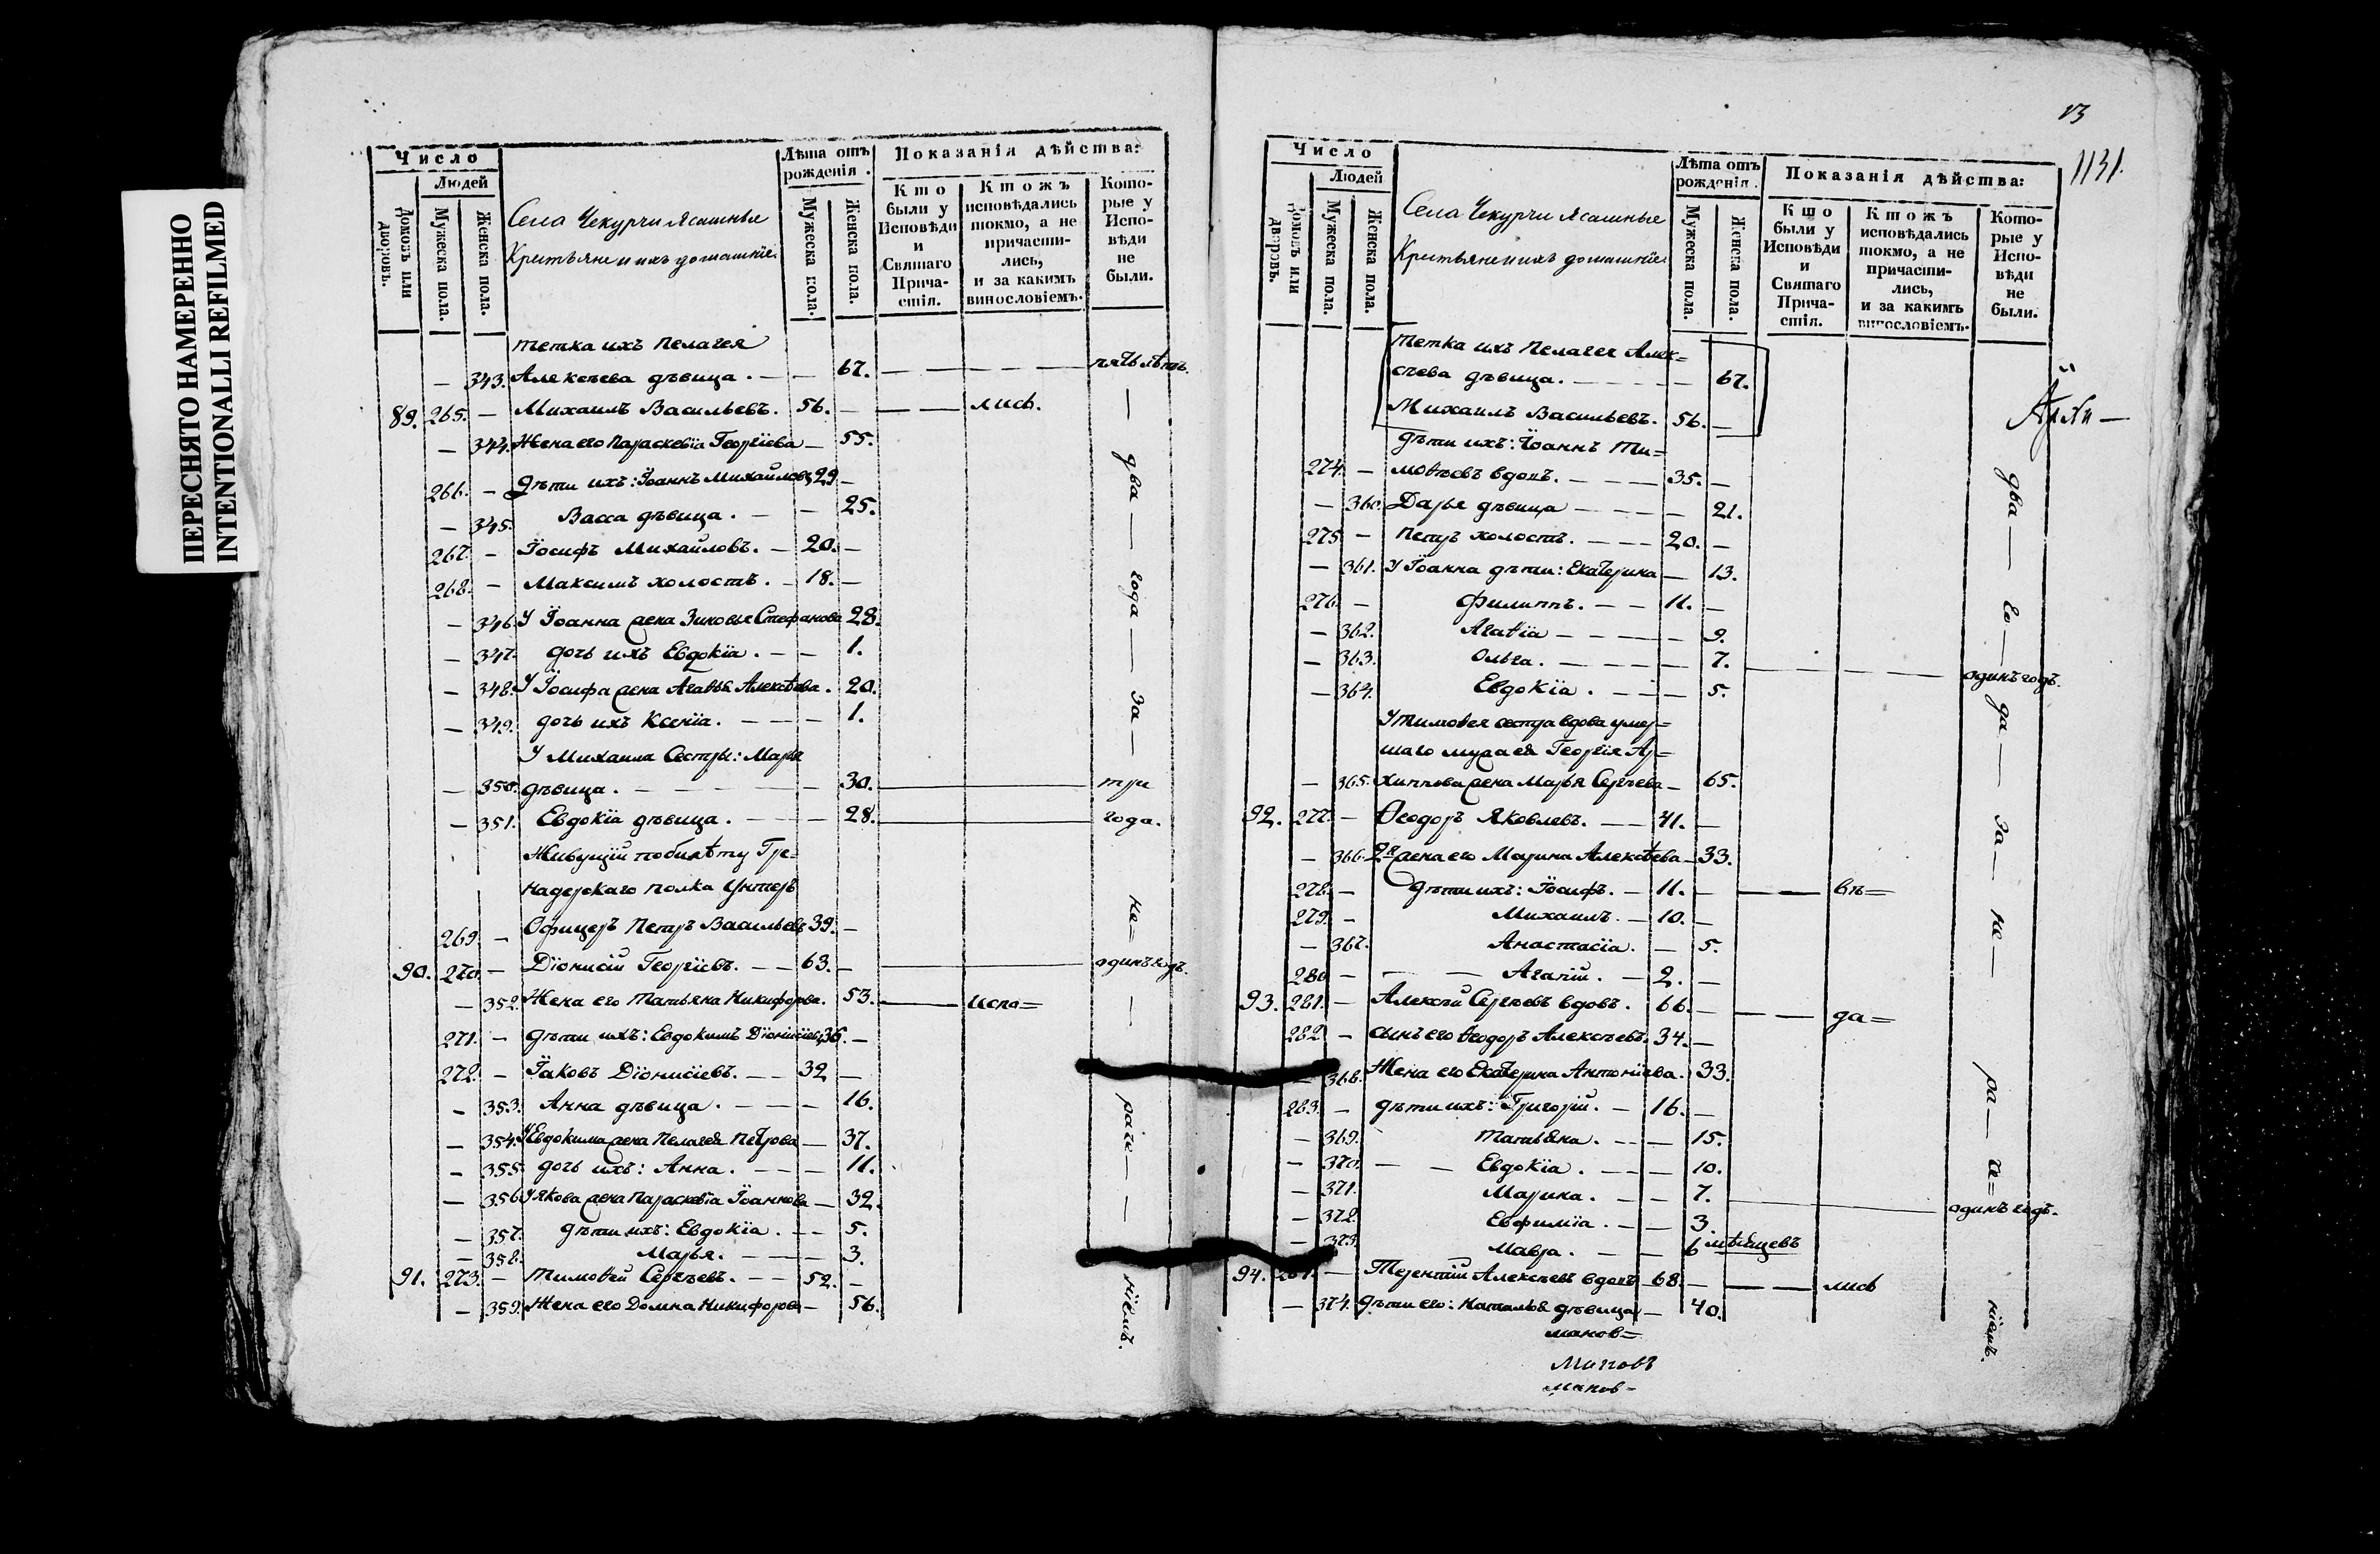 ПЕРЕСНЯТО НАМЕРЕННО
INTENTIONALLI REFILMED
Число
Людей
Домовъ или дворовъ.
Мужеска пола.
Женска пола.
Села Чекурчи Ясашныя
Крестьяне и ихъ домашніе.
Лѣта отъ рожденія.
Мужеска пола.
Женска пола.
Показанія дѣйства:
Кто были у Исповѣди и Святаго Причастія.
Ктожъ исповѣдались токмо, а не причастились, и за какимъ винословіемъ.
Которые у Исповѣди не были.
тетка ихъ Пелагея
— 343. Алексѣева дѣвица. — — 67. — — — — пять лѣтъ.
89. 265. — Михаилъ Васильевъ. 56. — — — лись. —
— 344. Жена его Параскевїа Георгїева — 55.
266. — Дѣти ихъ: Їоаннъ Михайловъ 29 —
— 345. Васса дѣвица. — — 25.
267. — Їосифъ Михайловъ. — 20. —
268. — Максимъ холостъ. — 18. —
— 346. У Їоанна жена Зиновья Стефанова 28.
— 347. дочь ихъ Евдокїа. — — 1.
— 348. У Їосифа жена Агаѳья Алексѣева. 20.
— 349. дочь ихъ Ксенїа. — — — 1.
У Михаила Сестры: Марья
— 350. дѣвица. — — — — 30. — три
— 351. Евдокїа дѣвица. — — — 28. — года.
Живущїй по билѣту Гре=
надерскаго полка Унтеръ
269. — Офицеръ Петръ Васильевъ 39. —
90. 270. — Дїонисїй Георгїевъ. — — 63. — — одинъ годъ.
— 352. Жена его Татьяна Никифорова. 53. — испо= —
271. — дѣти ихъ: Евдокимъ Дїонисїевъ 36. —
272. — Їаковъ Дїонисїевъ. — — 32 —
— 353. Анна дѣвица. — — — 16.
— 354. У Евдокима жена Пелагея Петрова — 37.
— 355. дочь ихъ: Анна. — — — 11.
— 356. У Якова жена Параскевїа Їоаннова — 32.
— 357. дѣти ихъ: Евдокїа. — — 5.
— 358. Марья. — — — 3.
91. 273. — Тимоѳей Сергѣевъ. — — 52. —
— 359. Жена его Домна Никифорова — 56.
два — года — за — не= раче — — нїемъ.
1131.
Число
Людей
Домовъ или дворовъ.
Мужеска пола.
Женска пола.
Села Чекурчи Ясашныя
Крестьяне и ихъ домашніе.
Лѣта отъ рожденія.
Мужеска пола.
Женска пола.
Показанія дѣйства:
Кто были у Исповѣди и Святаго Причастія.
Ктожъ исповѣдались токмо, а не причастились, и за какимъ винословіемъ.
Которые у Исповѣди не были.
тетка ихъ Пелагея Алек=
сѣева дѣвица. — — — — 67.
Михаилъ Васильевъ. 56. —
дѣти ихъ: Їоаннъ Ти=
274. — моѳеевъ вдовъ. — — — 35. —
— 360. Дарья дѣвица — — — — 21.
275. — Петръ холостъ. — — — 20. —
— 361. У Їоанна дѣти: Екатерина — 13.
276. — Филиппъ. — — 11. —
— 362. Агаѳїа — — — — 9.
— 363. Ольга. — — — — 7. — — — одинъ годъ.
— 364. Евдокїа. — — — 5.
У Тимоѳея сестра вдова умер=
шаго мужа ея Георгїя Ар=
— 365. хиппова жена Марья Сергѣева — 65.
92. 277. — Ѳеодоръ Яковлевъ. — — 41. —
— 366. 2я жена его Марина Алексѣева — 33.
278. — дѣти ихъ: Їосифъ. — 11. — — — вѣ=
279. — Михаилъ. — 10. —
— 367. Анастасїа. — 5.
280 — — — Агапїй. — 2. —
93. 281. — Алексѣй Сергѣевъ вдовъ. 66. — — — да=
282. — сынъ его Ѳеодоръ Алексѣевъ. 34. —
— 368. Жена его Екатерина Антонїева. 33.
283. — дѣти ихъ: Григорїй. — 16. —
— 369. Татьяна. — — 15.
— 370. — — Евдокїа. — — 10.
— 371. Марина. — — 7. — одинъ годъ.
— 372. Евфимїа. — — 3.
— 373. Мавра. — — 6 мѣсяцевъ
94. — Терентїй Алексѣевъ вдовъ 68. — — — лись
— 374. Дѣти его: Наталья дѣвица — 40.
два — го — да — за — не — ра — че= нїемъ.